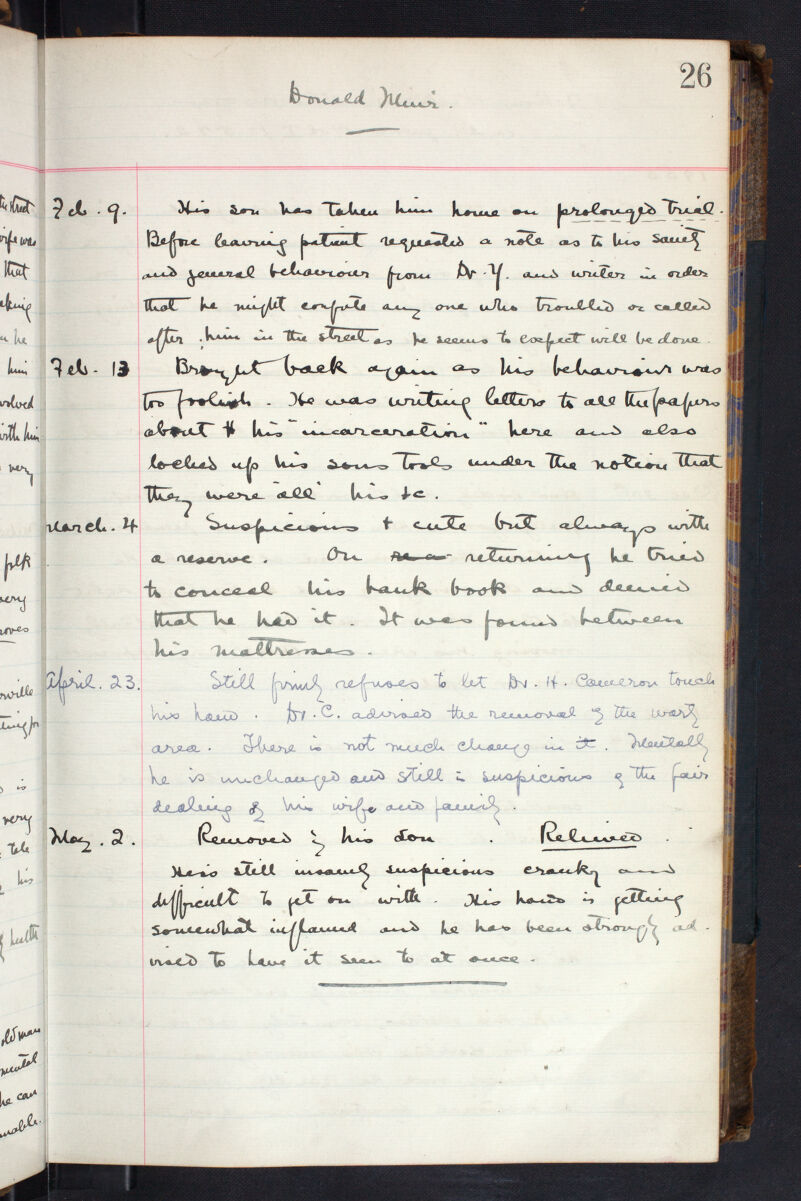 26
Donald Muir.
Feb. 9. His son has taken him home on prolonged trial.
Before leaving patient requested a note as to his sanity
and general behaviour from Dr. Y. and writer in order
that he might confute any one who troubled or called
after him in the street as he seems to expect will be done.
Feb. 13 Brought back again as his behaviour was
too foolish. He was writing letters to all the papers
about his "incarceration" here and also
locked up his sons tools under the notion that
they were 'all' his &c.
March. 4 Suspicious & cute but always with
a reserve. On returning he tried
to conceal his bank book and denied
that he had it. It was found between
his mattresses.
April. 23. Still firmly refuses to let Dr. H. Cameron touch
his hand. Dr. C. advised the removal of the warty
area. There is not much change in it. Mentally
he is unchanged and still is suspicious of the fair
dealing of his wife and family.
May. 2. Removed by his son. Relieved.
He is still insanely suspicious cranky and
difficult to get on with. His hand is getting
somewhat inflamed and he has been strongly ad-
vised to have it seen to at once.